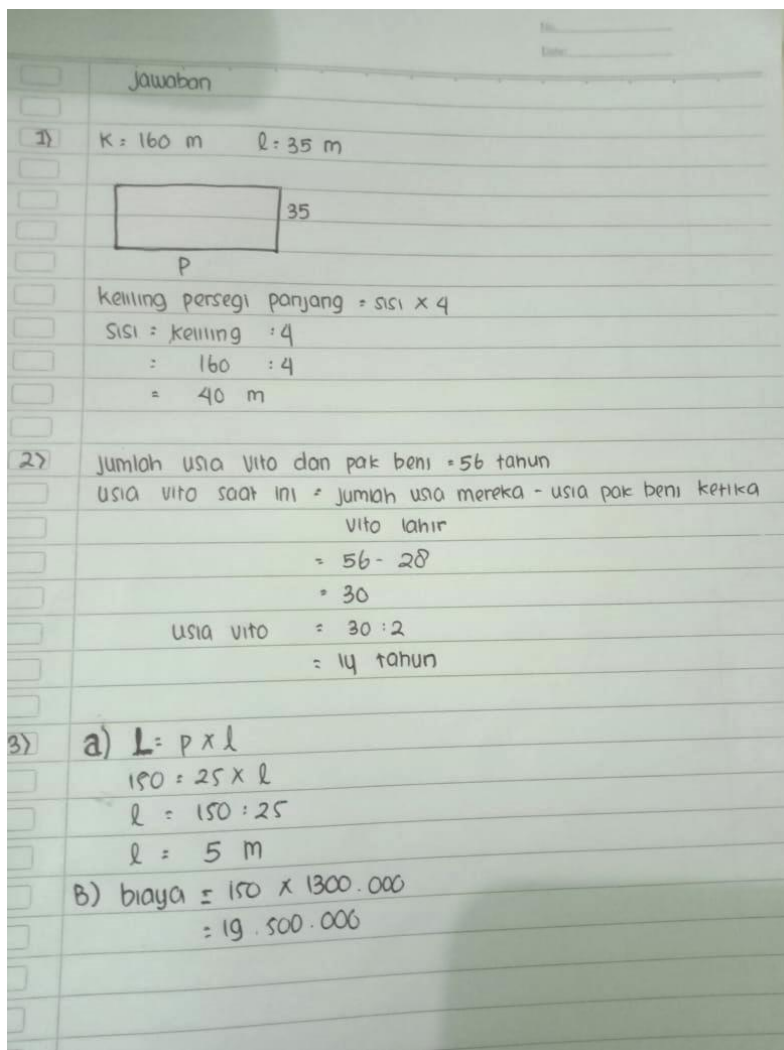 No.
Date:
Jawaban
1) K = 160 m l = 35 m
35
P
keliling persegi panjang = sisi x 4
sisi = keliling : 4
= 160 : 4
= 40 m
2) jumlah usia vito dan pak beni = 56 tahun
usia vito saat ini = jumlah usia mereka - usia pak beni ketika
vito lahir
= 56 - 28
= 30
usia vito = 30 : 2
= 14 tahun
3) a) L = p x l
150 = 25 x l
l = 150 : 25
l = 5 m
B) biaya = 150 x 1300.000
= 19.500.000